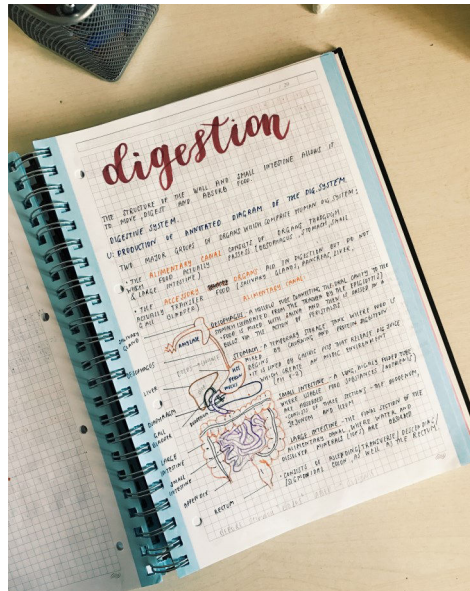 digestion
THE STRUCTURE OF THE WALL AND SMALL INTESTINE ALLOWS IT
TO MOVE DIGEST AND ABSORB FOOD.
DIGESTIVE SYSTEM.
U: PRODUCTION OF ANNOTATED DIAGRAM OF THE DIG. SYSTEM.
TWO MAJOR GROUPS OF ORGANS WHICH COMPRISE HUMAN DIG. SYSTEM:
• THE ALIMENTARY CANAL CONSISTS OF ORGANS THROUGH
WHICH FOOD ACTUALLY PASSES (OESOPHAGUS, STOMACH, SMALL
& LARGE INTESTINE)
• THE ACCESSORY ORGANS AID IN DIGESTION BUT DO NOT
ACTUALLY TRANSFER FOOD (SALIVARY GLAND, PANCREAS, LIVER,
GALL BLADDER)
ALIMENTARY CANAL:
OESOPHAGUS - A HOLLOW TUBE CONNECTING THE ORAL CAVITY TO THE
STOMACH (SEPARATED FROM THE TRACHEA BY THE EPIGLOTTIS)
FOOD IS MIXED WITH SALIVA AND THEN IS PASSED IN A
BOLUS VIA THE ACTION OF PERISTALSIS
STOMACH - A TEMPORARY STORAGE TANK WHERE FOOD IS
MIXED BY CHURNING AND PROTEIN DIGESTION
BEGINS
• IT IS LINED BY GASTRIC PITS THAT RELEASE DIG. JUICES
WHICH CREATE AN ACIDIC ENVIRONMENT
SMALL INTESTINE - A LONG HIGHLY FOLDED TUBE
WHERE USABLE FOOD SUBSTANCES (NUTRIENTS)
ARE ABSORBED
• CONSISTS OF THREE SECTIONS - THE DUODENUM,
JEJUNUM AND ILEUM
LARGE INTESTINE - THE FINAL SECTION OF THE
ALIMENTARY CANAL, WHERE WATER AND
DISSOLVED MINERALS ARE ABSORBED
• CONSISTS OF ASCENDING/TRANSVERSE/DESCENDING/
SIGMOIDAL COLON, AS WELL AS THE RECTUM
SALIVARY
GLAND
AMYLASE
OESOPHAGUS
LIVER
DIAPHRAGM
GALL
BLADDER
LARGE
INTESTINE
SMALL
INTESTINE
APPENDIX
RECTUM